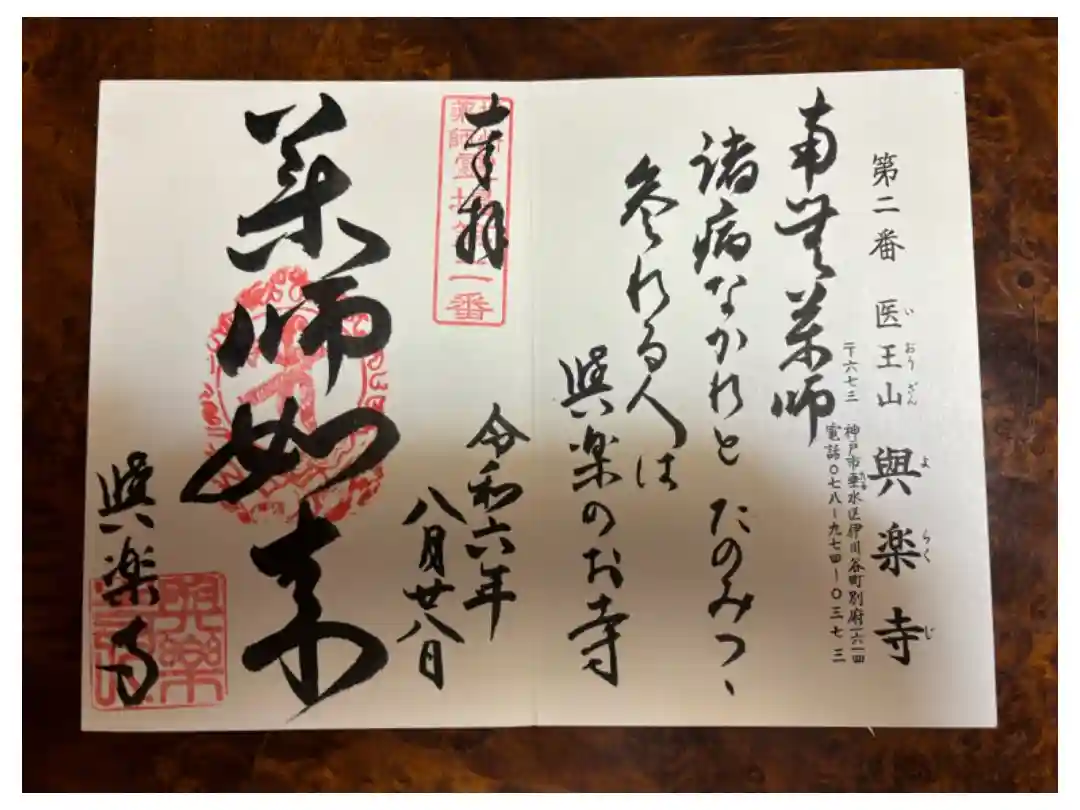 第二番 医王山 與楽寺
い おう ざん よ らく じ
〒六七三
神戸市垂水区伊川谷町別府一六一四
電話〇七八ー九七四ー〇三七三
南無薬師
諸病なかれと たのみつゝ
参れる人は
與楽のお寺
奉拝
薬師霊場第二番
令和六年
八月廿八日
薬師如来
與楽寺